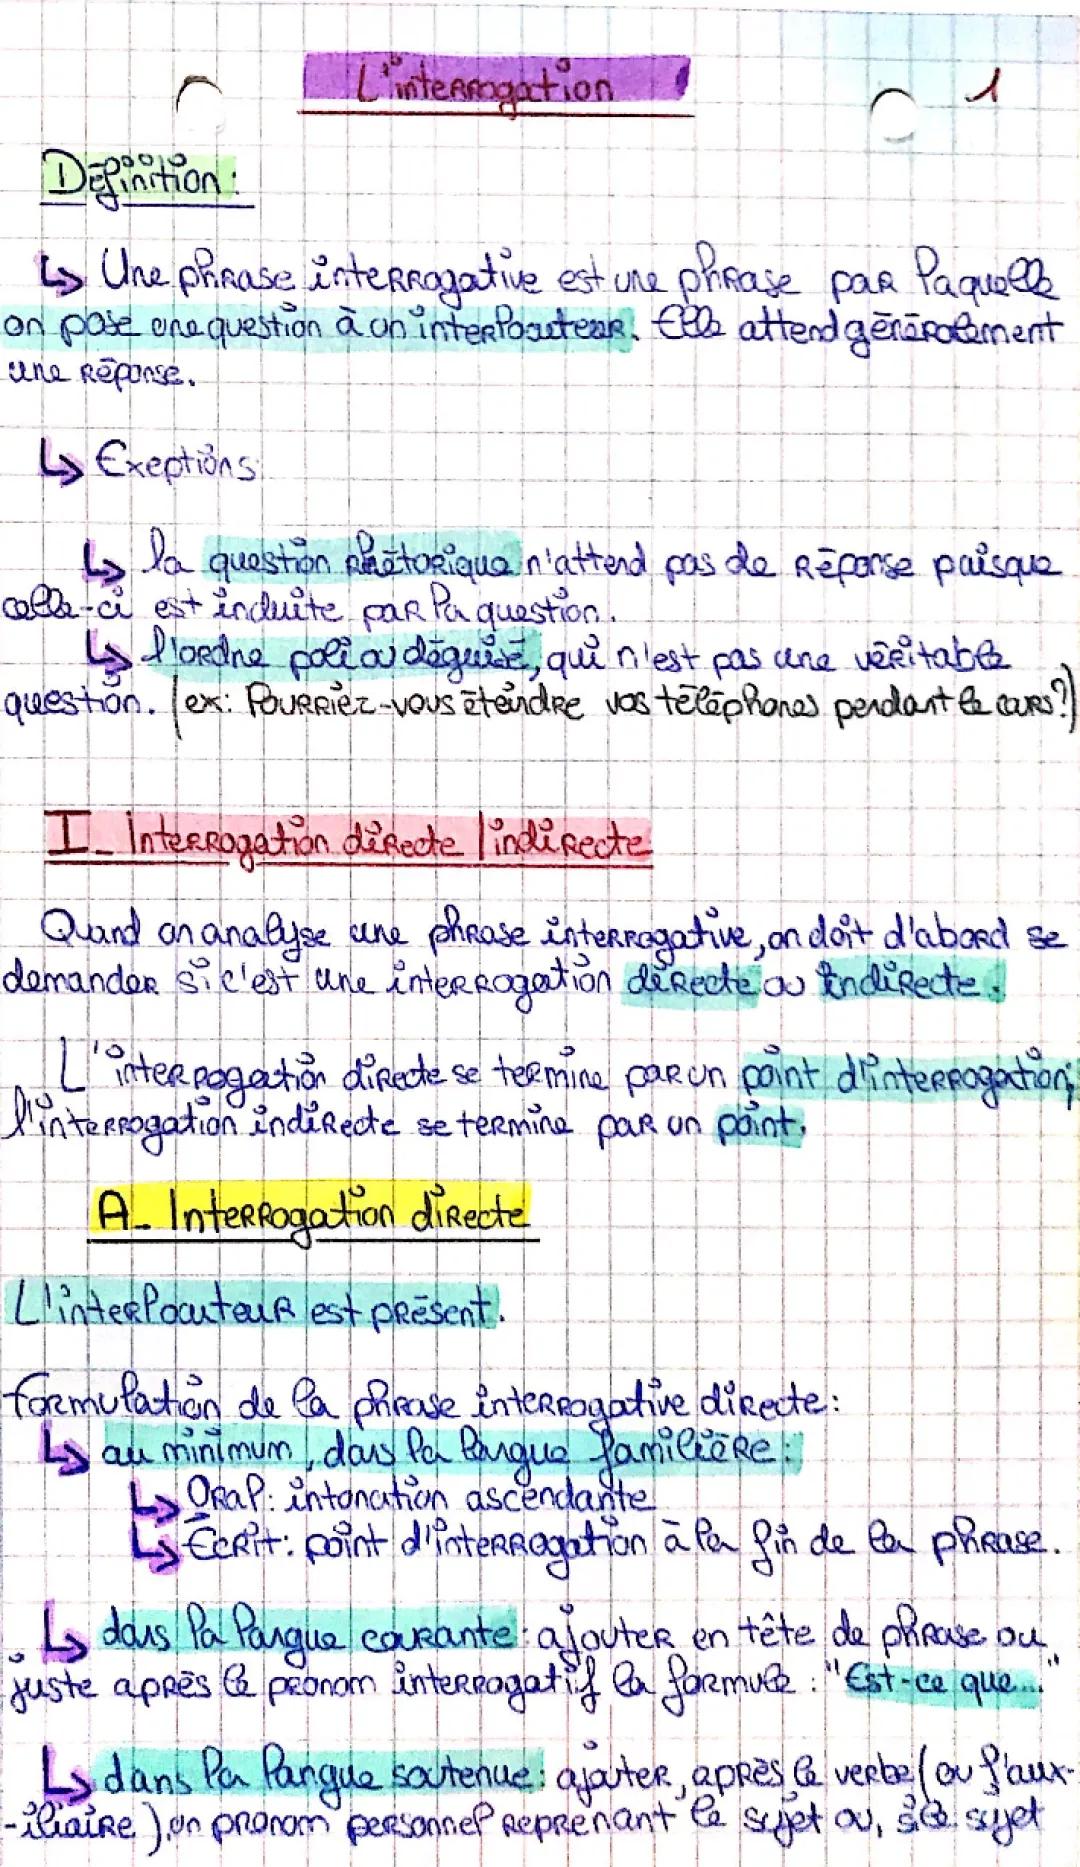 L'interrogation
1
Définition:
↳ Une phrase interrogative est une phrase par laquelle
on pose une question à un interlocuteur. Elle attend généralement
une réponse.
↳ Exeptions:
↳ la question rhétorique n'attend pas de réponse puisque
celle-ci est induite par la question.
↳ l'ordre poli ou déguisé, qui n'est pas une véritable
question. (ex: Pourriez-vous éteindre vos téléphones pendant le cours?)
I_ Interrogation directe / indirecte
Quand on analyse une phrase interrogative, on doit d'abord se
demander si c'est une interrogation directe ou indirecte.
L'interrogation directe se termine par un point d'interrogation;
l'interrogation indirecte se termine par un point.
A_ Interrogation directe
L'interlocuteur est présent.
Formulation de la phrase interrogative directe:
↳ au minimum, dans la langue familière:
↳ Oral: intonation ascendante
↳ Écrit: point d'interrogation à la fin de la phrase.
↳ dans la langue courante: ajouter en tête de phrase ou
juste après le pronom interrogatif la formule: "Est-ce que..."
↳ dans la langue soutenue: ajouter, après le verbe (ou l'aux-
-iliaire), un pronom personnel reprenant le sujet ou, si le sujet